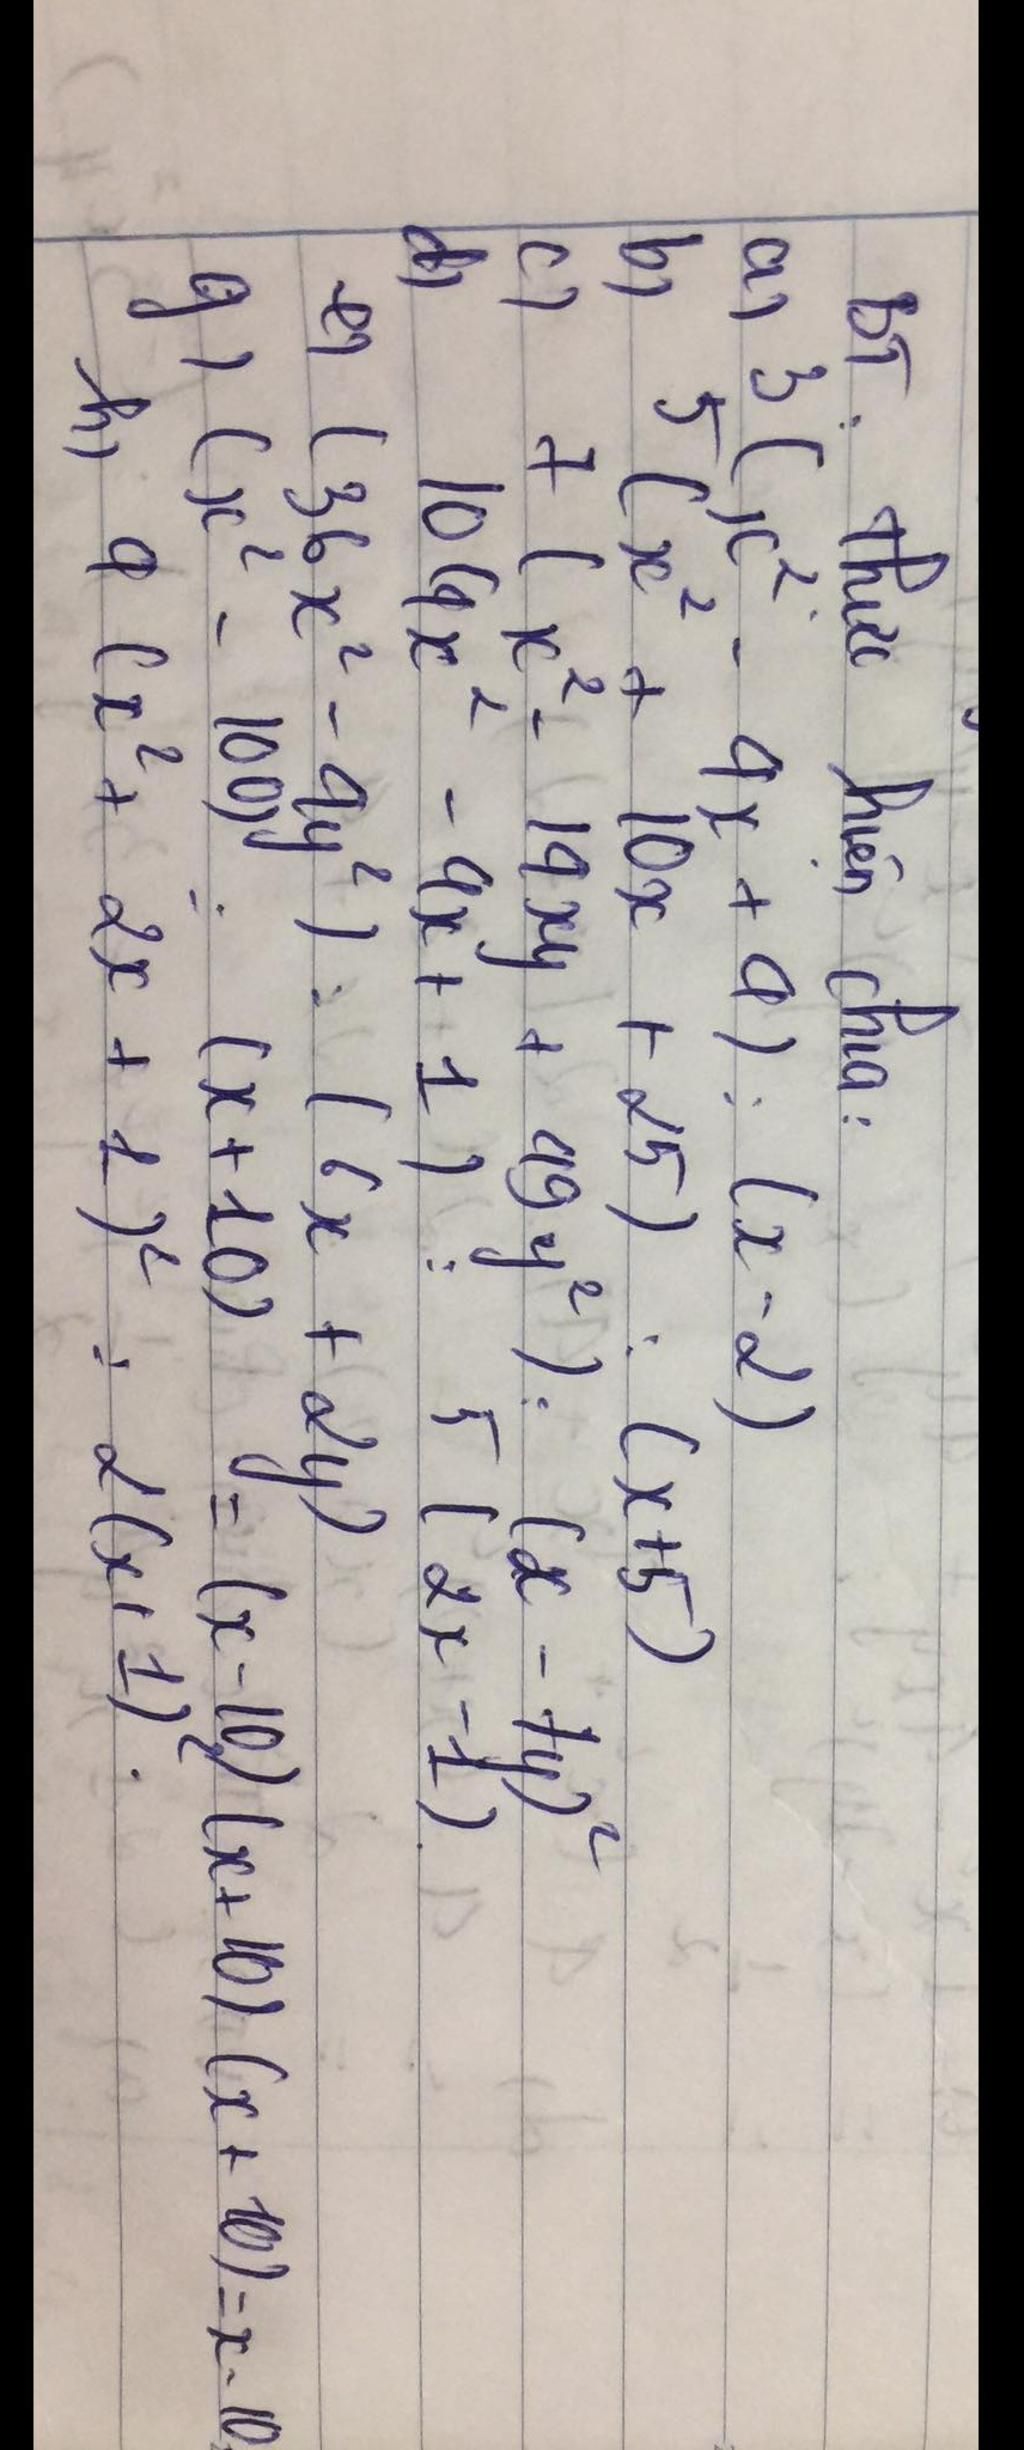 BT: Thực hiện chia:
a) 3(x² - 4x + 4) : (x - 2)
b) 5(x² + 10x + 25) : (x+5)
c) 7(x² - 14xy + 49y²) : (x - 7y)²
d) 10(4x² - 4x + 1) : 5(2x - 1).
e) (36x² - 4y²) : (6x + 2y)
g) (x² - 100) : (x+10) = (x-10)(x+10) (x+10) = x-10.
h) 4(x² + 2x + 1)² : 2(x+1)².